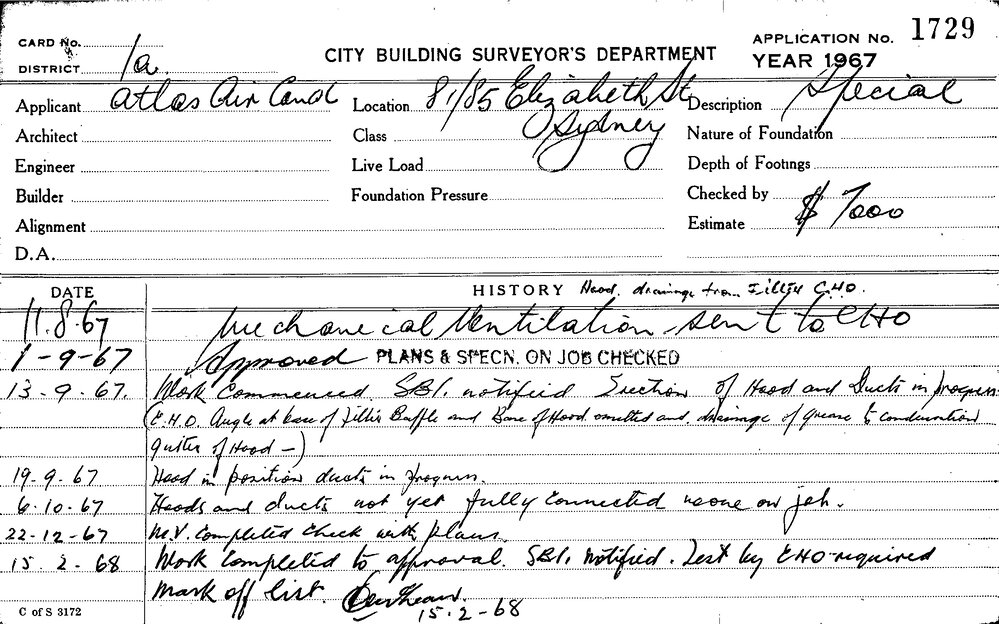 CARD No.
DISTRICT 1a
CITY BUILDING SURVEYOR'S DEPARTMENT
APPLICATION No. 1729
YEAR 1967
Applicant Atlas Air Cond Location 81/85 Elizabeth St Description Special
Architect Class Sydney Nature of Foundation
Engineer Live Load Depth of Footings
Builder Foundation Pressure Checked by
Alignment Estimate $ 7000
D.A.
DATE HISTORY Hood. drainage from Filter C.H.O.
11.8.67 Mechanical Ventilation - sent to CHO
1-9-67 Approved PLANS & SPECN. ON JOB CHECKED
13-9-67. Work Commenced. SBI. notified Erection of Hood and Ducts in progress
(E.H.O. Angle at base of Filter Baffle and Base of Hood omitted and drainage of grease to condensation
gutter of Hood -)
19-9-67 Hood in position ducts in progress.
6-10-67 Hoods and ducts not yet fully connected noone on job.
22-12-67 M.V. Completed Check with plans.
15.2-68 Work completed to approval. SBI. Notified. Test by EHO required
Mark off list.
15.2-68
C of S 3172